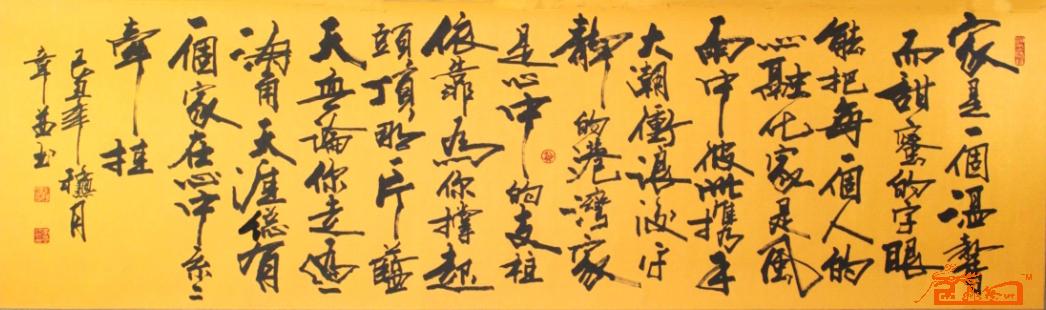 家是一個温馨
而甜蜜的字眼
能把每一個人的
心融化家是風
雨中彼此攜手
大潮衝浪後平
靜的港灣家
是心中的支柱
依靠為你撐起
頭頂那片藍
天無論你走遍
海角天涯總有
一個家在心中
牽挂
己丑年 月
章益